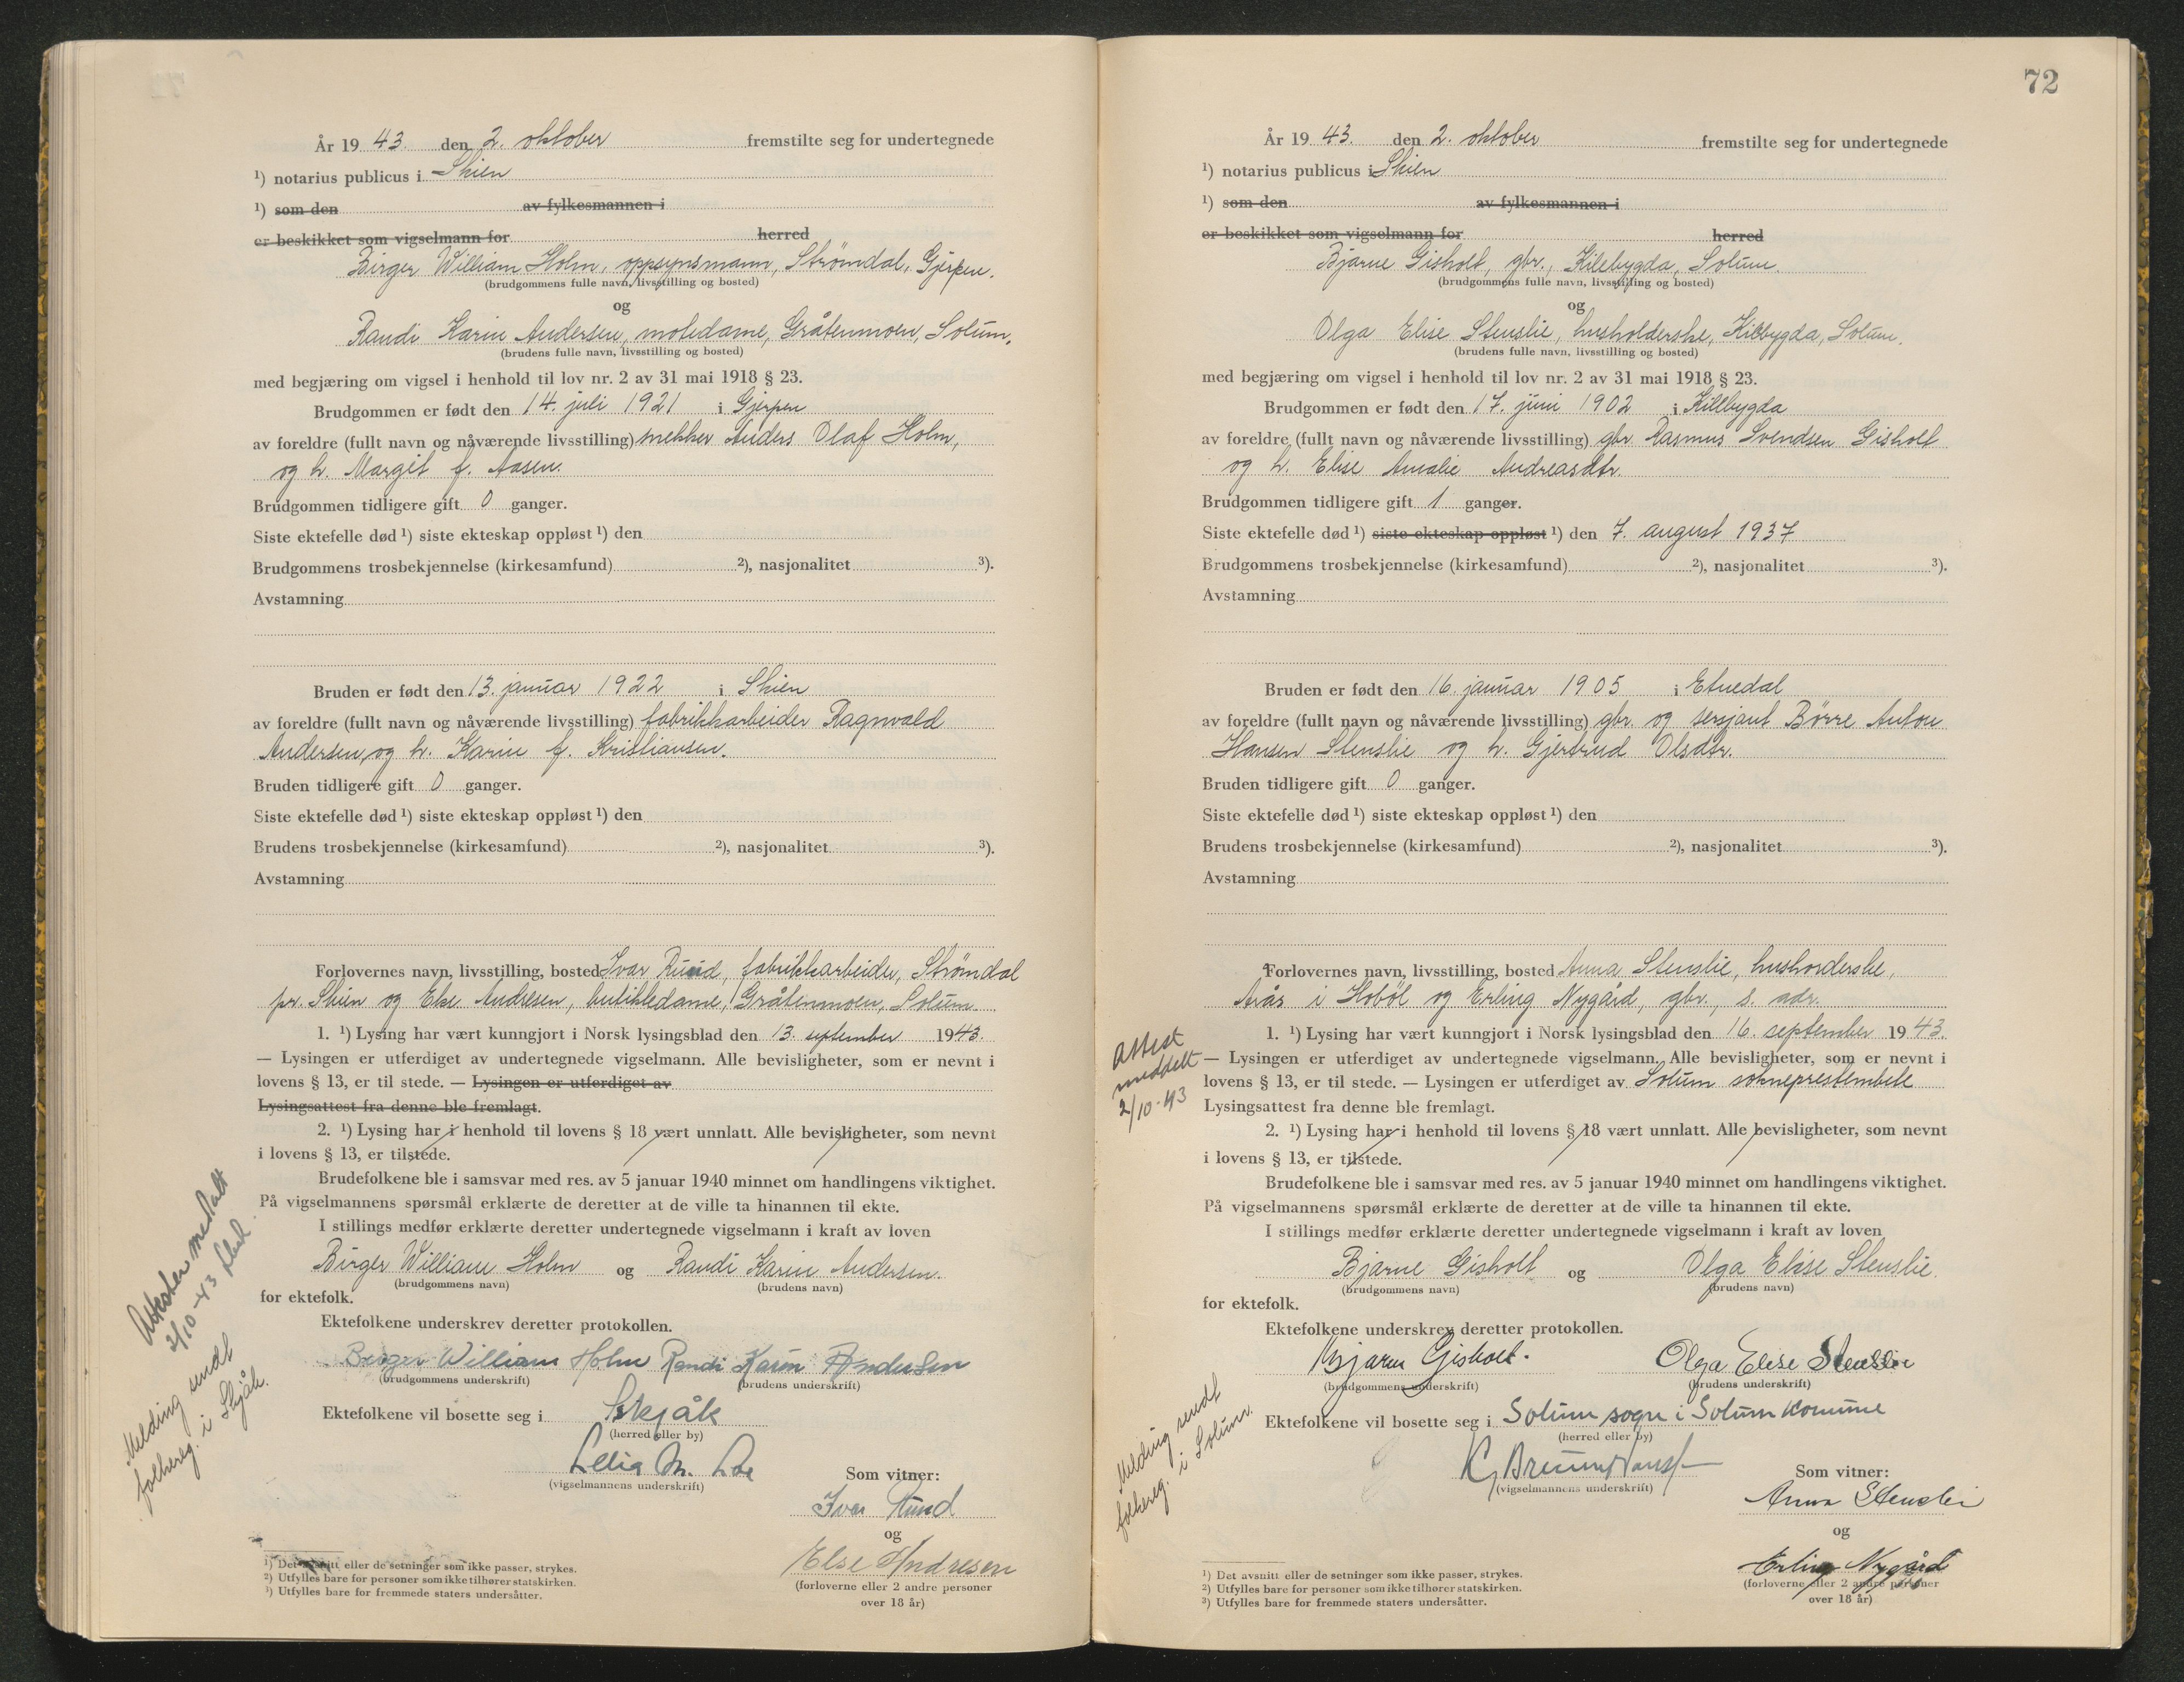 År 1943. den 2. oktober fremstilte seg for undertegnede
¹) notarius publicus i Skien
¹) som den av fylkesmannen i
er beskikket som vigselmann for herred
Birger William Holm, oppsynsmann, Strömdal, Gjerpen.
(brudgommens fulle navn, livsstilling og bosted)
og
Randi Karin Andersen, motedame, Gråtenmoen, Solum.
(brudens fulle navn, livsstilling og bosted)
med begjæring om vigsel i henhold til lov nr. 2 av 31 mai 1918 § 23.
Brudgommen er født den 14. juli 1921 i Gjerpen
av foreldre (fullt navn og nåværende livsstilling) mekker Anders Olaf Holm,
og h. Margit f. Aasen.
Brudgommen tidligere gift 0 ganger.
Siste ektefelle død ¹) siste ekteskap oppløst ¹) den
Brudgommens trosbekjennelse (kirkesamfund) ²), nasjonalitet ³).
Avstamning
Bruden er født den 13. januar 1922 i Skien
av foreldre (fullt navn og nåværende livsstilling) fabrikkarbeider Ragnvald
Andersen, og h. Karin f. Kristiansen.
Bruden tidligere gift 0 ganger.
Siste ektefelle død ¹) siste ekteskap oppløst ¹) den
Brudens trosbekjennelse (kirkesamfund) ²), nasjonalitet ³).
Avstamning
Forlovernes navn, livsstilling, bosted Ivar Ruud, fabrikkarbeider, Strömdal
pr. Skien og Else Andresen, butikkdame, Gråtenmoen, Solum.
1. ¹) Lysing har vært kunngjort i Norsk lysingsblad den 13. september 1943.
— Lysingen er utferdiget av undertegnede vigselmann. Alle bevisligheter, som er nevnt i
lovens § 13, er til stede. — Lysingen er utferdiget av
Lysingsattest fra denne ble fremlagt.
2. ¹) Lysing har i henhold til lovens § 18 vært unnlatt. Alle bevisligheter, som nevnt
i lovens § 13, er tilstede.
Brudefolkene ble i samsvar med res. av 5 januar 1940 minnet om handlingens viktighet.
På vigselmannens spørsmål erklærte de deretter at de ville ta hinannen til ekte.
I stillings medfør erklærte deretter undertegnede vigselmann i kraft av loven
Birger William Holm og Randi Karin Andersen.
(brudgommens navn) (brudens navn)
for ektefolk.
Ektefolkene underskrev deretter protokollen.
Birger William Holm Randi Karin Andersen
(brudgommens underskrift) (brudens underskrift)
Ektefolkene vil bosette seg i Skjåk
(herred eller by)
(vigselmannens underskrift)
Som vitner:
Ivar Ruud
og
Else Andresen
(forloverne eller 2 andre personer
over 18 år)
Attester meddelt
2/10-43
Melding sendt
folkereg. i Skjåk.
¹) Det avsnitt eller de setninger som ikke passer, strykes.
²) Utfylles bare for personer som ikke tilhører statskirken.
³) Utfylles bare for fremmede staters undersåtter.
72
År 1943. den 2. oktober fremstilte seg for undertegnede
¹) notarius publicus i Skien
¹) som den av fylkesmannen i
er beskikket som vigselmann for herred
Bjarne Gisholt, gbr., Kilebygda, Solum.
(brudgommens fulle navn, livsstilling og bosted)
og
Olga Elise Stenslie, husholderske, Kilebygda, Solum.
(brudens fulle navn, livsstilling og bosted)
med begjæring om vigsel i henhold til lov nr. 2 av 31 mai 1918 § 23.
Brudgommen er født den 17. juni 1902 i Killbygda
av foreldre (fullt navn og nåværende livsstilling) gbr. Rasmus Svendsen Gisholt
og h. Elise Amalie Andreasdtr.
Brudgommen tidligere gift 1 ganger.
Siste ektefelle død ¹) siste ekteskap oppløst ¹) den 7. august 1937
Brudgommens trosbekjennelse (kirkesamfund) ²), nasjonalitet ³).
Avstamning
Bruden er født den 16. januar 1905 i Etnedal
av foreldre (fullt navn og nåværende livsstilling) gbr. og sersjant Börre Anton
Hansen Stenslie og h. Gjertrud Olsdtr.
Bruden tidligere gift 0 ganger.
Siste ektefelle død ¹) siste ekteskap oppløst ¹) den
Brudens trosbekjennelse (kirkesamfund) ²), nasjonalitet ³).
Avstamning
Forlovernes navn, livsstilling, bosted Anna Stenslie, husholderske,
Arås i Hoböl og Erling Nygård, gbr., s. adr.
1. ¹) Lysing har vært kunngjort i Norsk lysingsblad den 16. september 1943.
— Lysingen er utferdiget av undertegnede vigselmann. Alle bevisligheter, som er nevnt i
lovens § 13, er til stede. — Lysingen er utferdiget av Solum sokneprestembete
Lysingsattest fra denne ble fremlagt.
2. ¹) Lysing har i henhold til lovens § 18 vært unnlatt. Alle bevisligheter, som nevnt
i lovens § 13, er tilstede.
Brudefolkene ble i samsvar med res. av 5 januar 1940 minnet om handlingens viktighet.
På vigselmannens spørsmål erklærte de deretter at de ville ta hinannen til ekte.
I stillings medfør erklærte deretter undertegnede vigselmann i kraft av loven
Bjarne Gisholt og Olga Elise Stenslie.
(brudgommens navn) (brudens navn)
for ektefolk.
Ektefolkene underskrev deretter protokollen.
Bjarne Gisholt. Olga Elise Stenslie
(brudgommens underskrift) (brudens underskrift)
Ektefolkene vil bosette seg i Solum sogn i Solum komune
(herred eller by)
(vigselmannens underskrift)
Som vitner:
Anna Stenslie
og
Erling Nygård
(forloverne eller 2 andre personer
over 18 år)
Attest
meddelt
2/10-43
Melding sendt
folkereg. i Solum.
¹) Det avsnitt eller de setninger som ikke passer, strykes.
²) Utfylles bare for personer som ikke tilhører statskirken.
³) Utfylles bare for fremmede staters undersåtter.